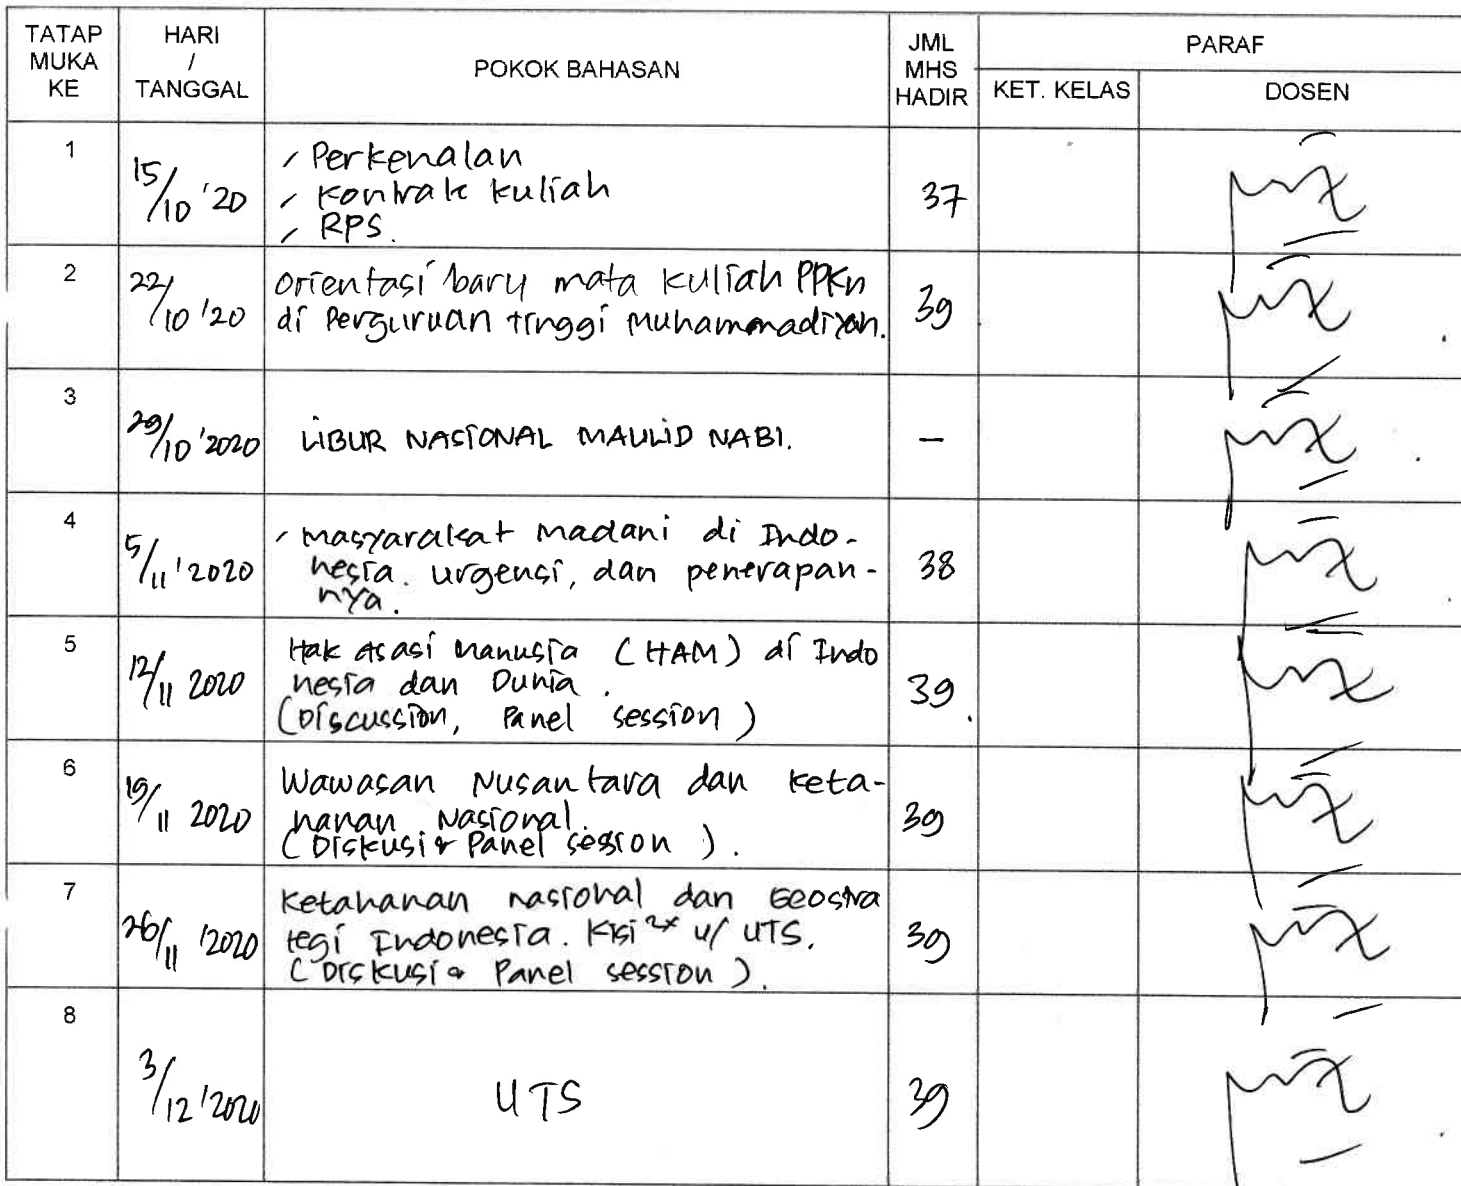 TATAP MUKA KE HARI / TANGGAL POKOK BAHASAN JML MHS HADIR PARAF
KET. KELAS DOSEN
1 15/10 '20 - Perkenalan
- Kontrak kuliah
- RPS. 37
2 22/10 '20 Orientasi baru mata kuliah PPKn
di Perguruan tinggi Muhammadiyah. 39
3 29/10 '2020 LIBUR NASIONAL MAULID NABI. —
4 5/11 '2020 - Masyarakat madani di Indo-
nesia. urgensi, dan penerapan-
nya. 38
5 12/11 2020 Hak Asasi Manusia (HAM) di Indo
nesia dan Dunia.
(Discussion, Panel session) 39
6 19/11 2020 Wawasan Nusantara dan keta-
hanan Nasional.
(Diskusi & Panel session). 39
7 26/11 '2020 Ketahanan nasional dan Geostra
tegi Indonesia. Kisi 2x u/ UTS.
(Diskusi & Panel session). 39
8 3/12 '2020 UTS 39